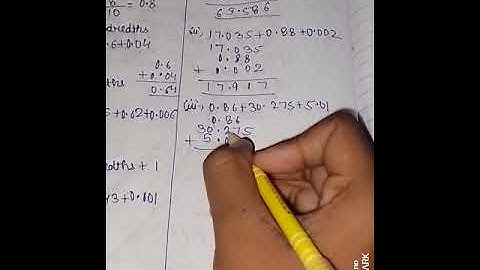 = 0.8
10
hundredths
.6+0.04
0.6
+0.04
0.64
+0.62+0.006
dths + 1
3+0.001
69.686
(ii), 17.035+0.88+0.002
17.035
0.88
+ 0.002
17.917
(iii), 0.86+30.275+5.01
0.86
30.275
+ 5.